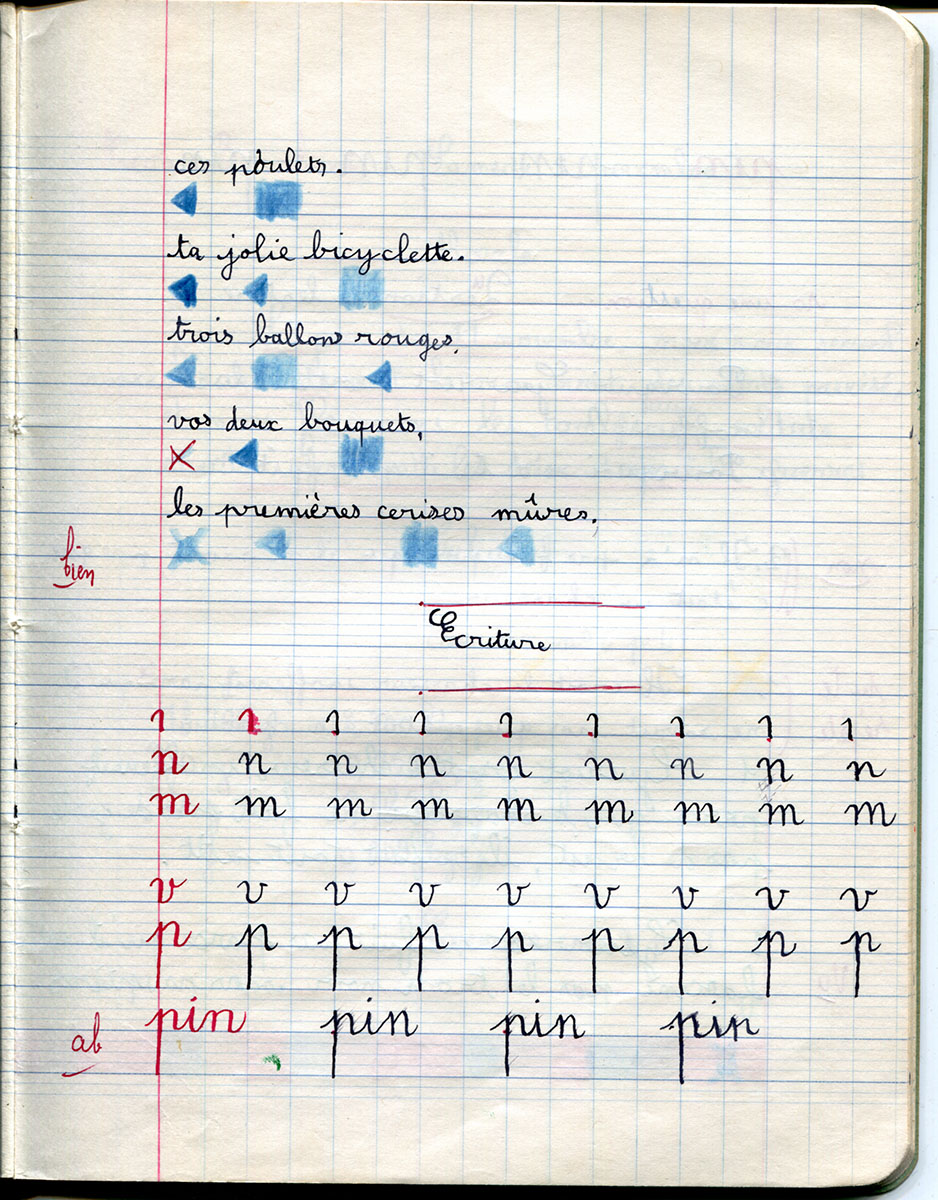 ces poulets.
ta jolie bicyclette.
trois ballons rouges.
vos deux bouquets.
les premières cerises mûres.
bien
Ecriture
ı ı ı ı ı ı ı ı ı
n n n n n n n n n
m m m m m m m m m
v v v v v v v v v
p p p p p p p p p
pin pin pin pin
ab